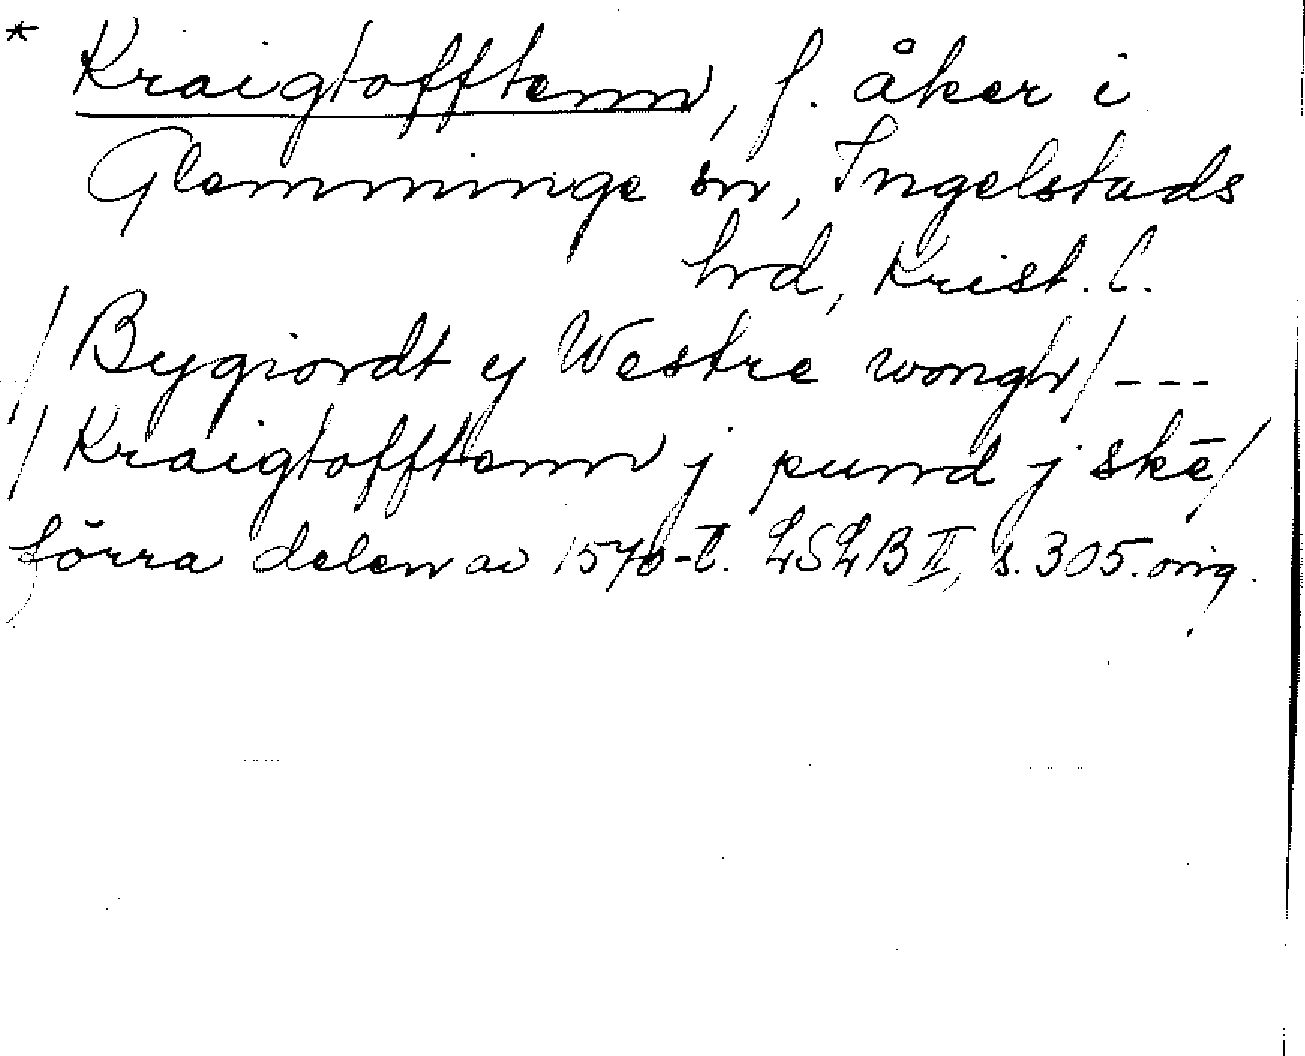 * Kraigtofftenn, f. åker i
Glemminge sn, Ingelstads
hrd, Krist. l.
/ Bygiordt y Westre wongh / ---
/ Kraigtofftenn j pund j skē /
förra delen av 1570-t. LSLB II, s. 305. orig.